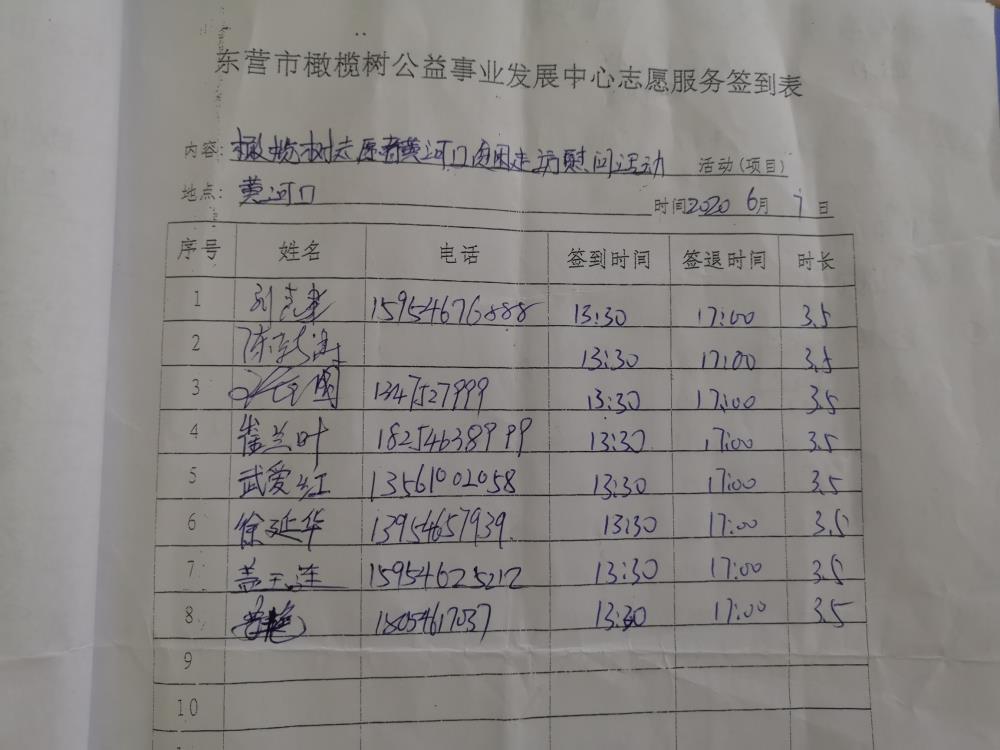 东营市橄榄树公益事业发展中心志愿服务签到表
内容: 橄榄树志愿者黄河口贫困走访慰问活动 活动(项目)
地点: 黄河口 时间2020 6月 7日
序号 姓名 电话 签到时间 签退时间 时长
1 15954676888 13:30 17:00 3.5
2 13:30 17:00 3.5
3 1347527999 13:30 17:00 3.5
4 崔兰叶 18254638999 13:30 17:00 3.5
5 武爱红 13561002058 13:30 17:00 3.5
6 徐延华 13954657939 13:30 17:00 3.5
7 盖玉莲 15954625212 13:30 17:00 3.5
8 18054617037 13:30 17:00 3.5
9
10